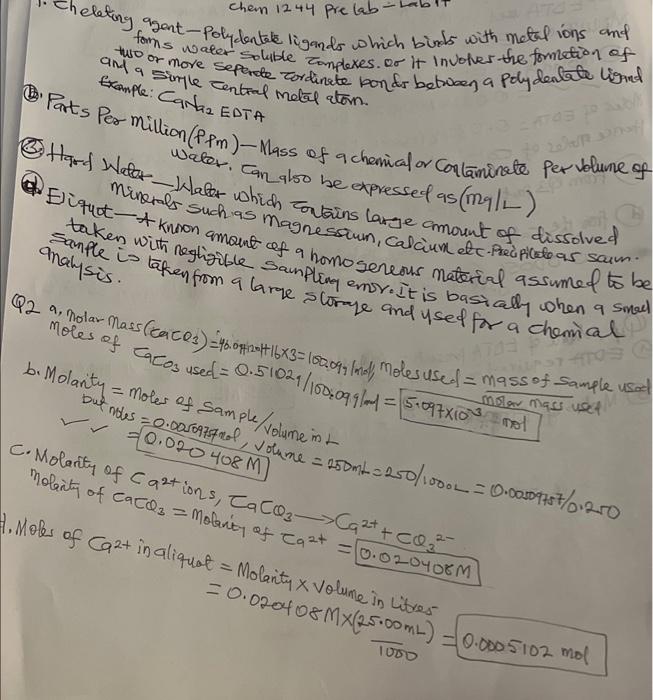 Chem 1244 Pre lab - Lab
1. Chelating agent — Polydentate ligands which binds with metal ions and
forms water-soluble complexes. or it involves the formation of
two or more seperate cordinate bonds between a polydentate ligand
and a single central metal atom.
Example: CaNa2 EDTA
(b) Parts Per Million (PPm) — Mass of a chemical or Contaminate Per volume of
water. Can also be expressed as (mg/L)
(3) Hard Water — Water which contains large amount of dissolved
minerals such as magnessium, calcium etc. Precipitate as scum.
(d) Eliquot — A known amount of a homogeneous material assumed to be
taken with negligible sampling error. It is basically when a small
sample is taken from a large storage and used for a chemical
analysis.
Q2 a, molar mass (CaCO3) = 12.01+16x3 = 100.09g/mol, moles used = mass of sample used
molar mass used
Moles of CaCO3 used = 0.5102g/100.09g/mol = 5.097x10-3 mol
b. Molarity = moles of sample/volume in L
but moles = 0.00509757mol, volume = 250mL = 250/1000L = 0.00509757/0.250
= 0.020408M
C. Molarity of Ca2+ ions, CaCO3 → Ca2+ + CO3 2-
Molarity of CaCO3 = Molarity of Ca2+ = 0.020408M
d. Moles of Ca2+ in aliquot = Molarity x volume in Litres
= 0.020408M x (25.00mL) = 0.0005102 mol
1000